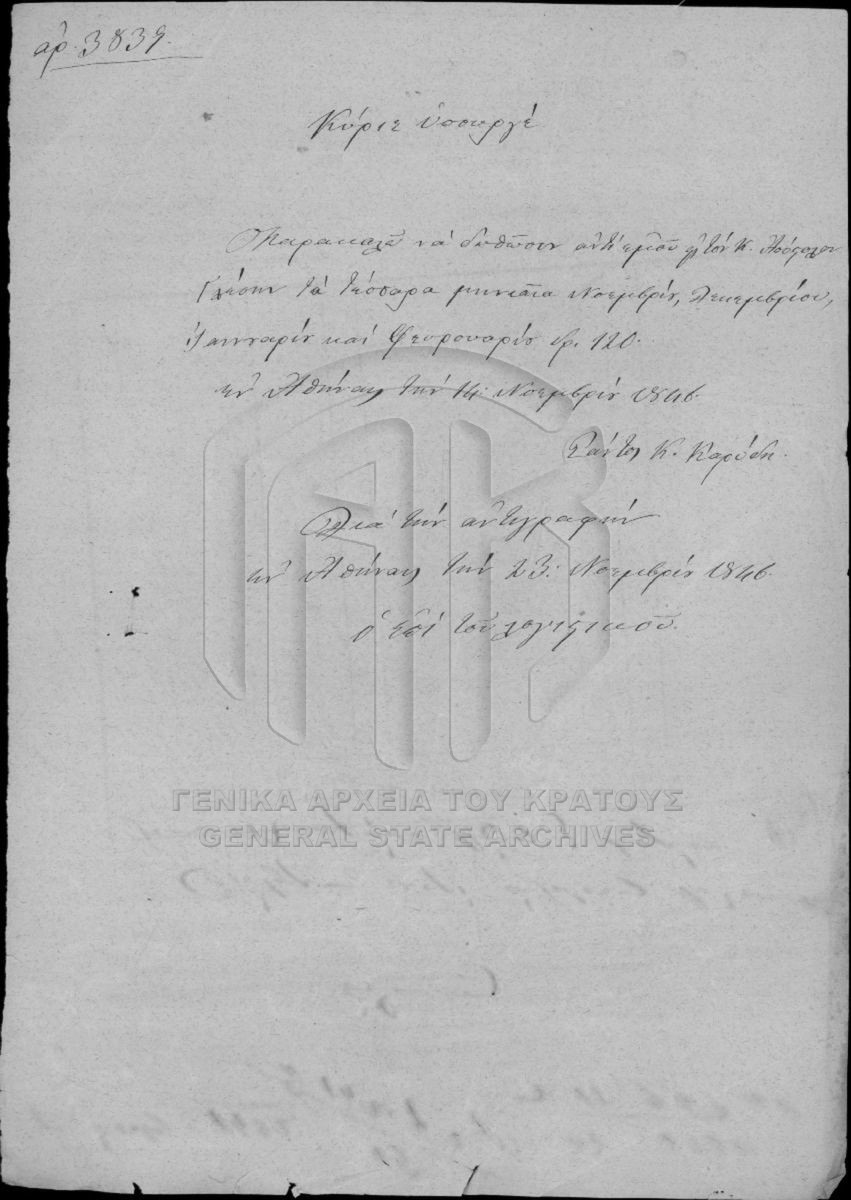 ἀρ. 3839.
Κύριε ὑπουργέ
Παρακαλῶ νὰ δοθῶσιν ἀντ' ἐμοῦ εἰς τὸν Κ. Ἀπόστολον
τὰ τέσσαρα μηνιαῖα Νοεμβρίου, Δεκεμβρίου,
Ἰαννουαρίου καὶ Φευρουαρίου δρ. 120.
ἐν Ἀθήναις τὴν 14: Νοεμβρίου 1846.
Πάντος Κ. Καρύδη.
Διὰ τὴν ἀντιγραφὴν
ἐν Ἀθήναις τὴν 23: Νοεμβρίου 1846.
ὁ ἐπὶ τοῦ λογιστικοῦ.
ΓΕΝΙΚΑ ΑΡΧΕΙΑ ΤΟΥ ΚΡΑΤΟΥΣ
GENERAL STATE ARCHIVES